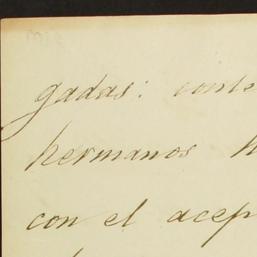 gadas: conte
hermanos h
con el acep